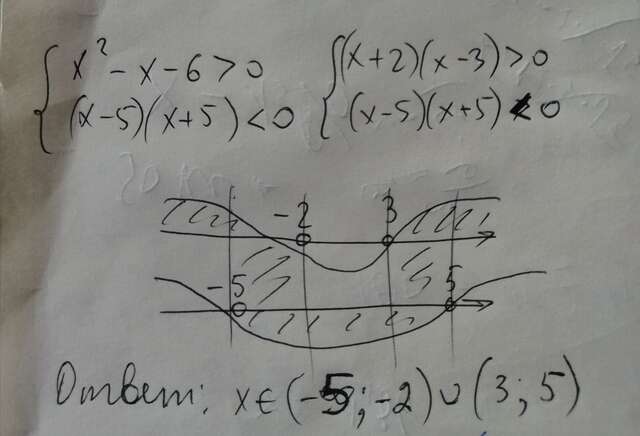 x² - x - 6 > 0 (x+2)(x-3) > 0
(x-5)(x+5) < 0 (x-5)(x+5) < 0
-2 3
-5 5
Ответ: x∈(-5;-2)∪(3;5)